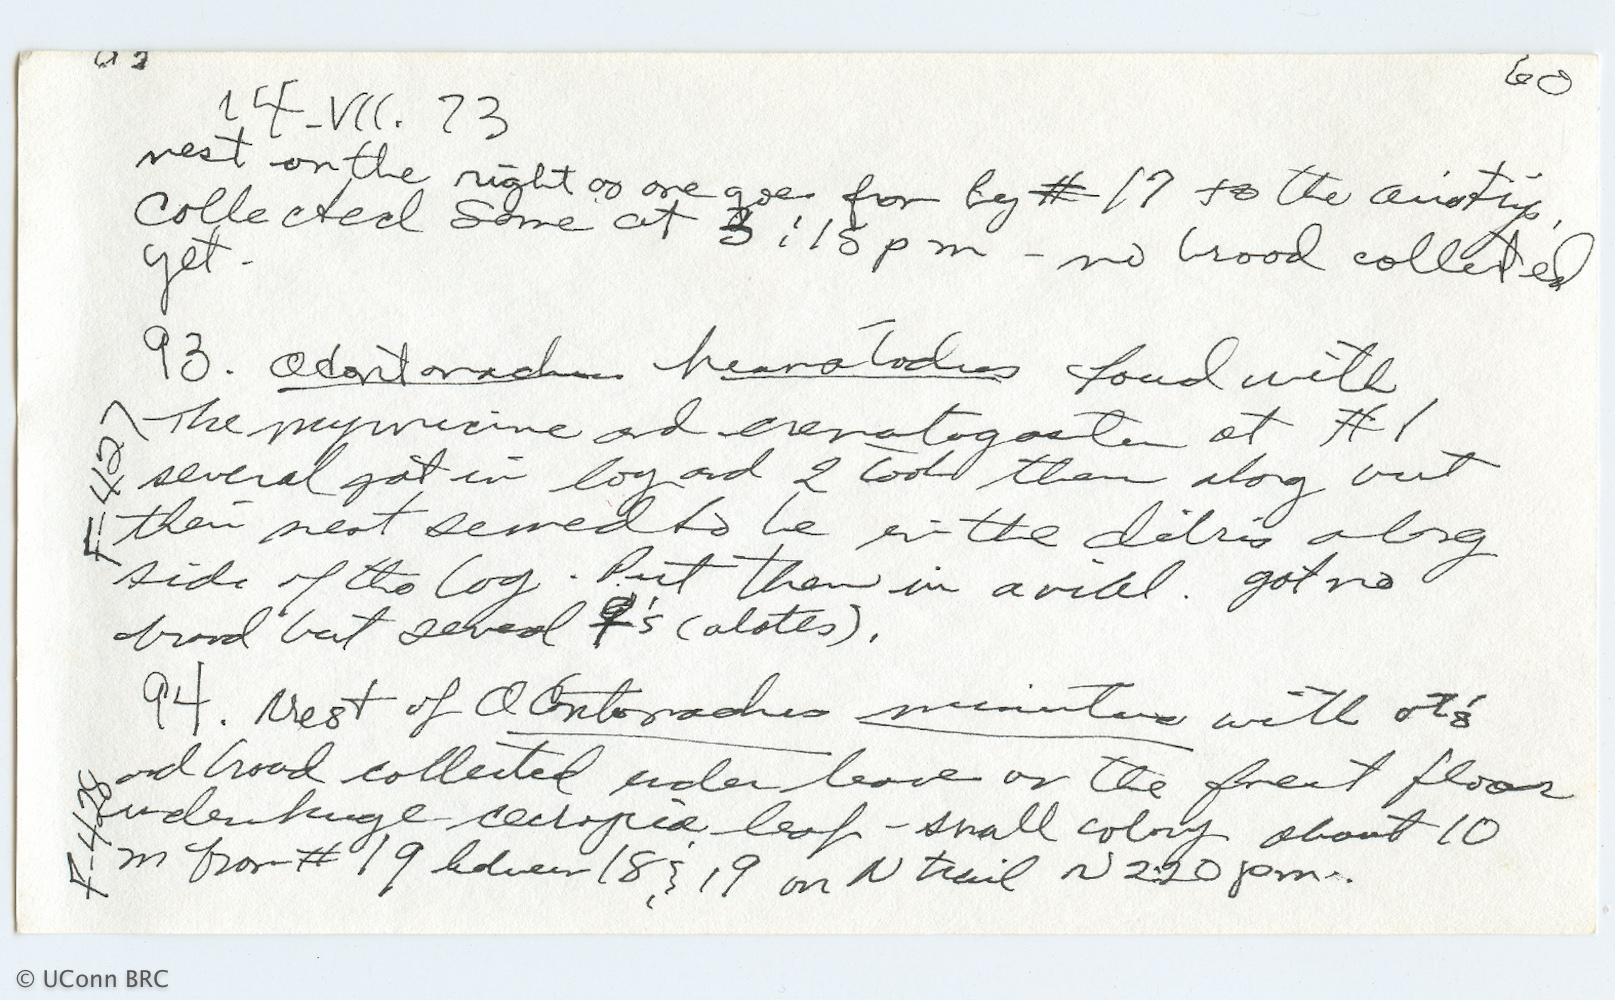 60
14-VII. 73
nest on the right as one goes from by #17 to the airstrip,
collected some at 3:15 pm - no brood collected
yet.
93. Odontomachus hematodus found with
The myrmicine and crematogaster at #1
several got in log and I took them along but
their nest seemed to be in the debris along
side of the log. Put them in a vial. got no
brood but several ♀'s (alates).
F-427
94. Nest of Odontomachus minutus with
and brood collected under leave on the forest floor
under huge cecropia leaf - small colony about 10
m from #19 between 18 & 19 on N trail N 220 pm.
F-428
© UConn BRC